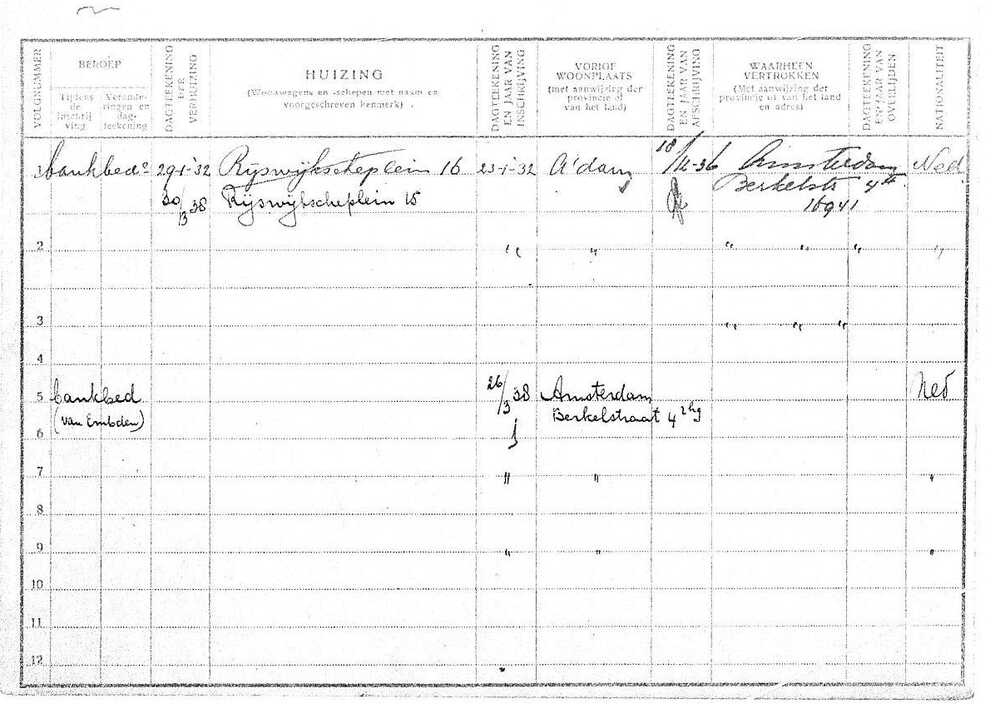 VOLGNUMMER
BEROEP
Tijdens de inschrij ving
Verande- ringen en dag- teekening
DAGTEEKENING DER VERHUIZING
HUIZING
(Woonwagens en -schepen met naam en voorgeschreven kenmerk)
DAGTEEKENING EN JAAR VAN INSCHRIJVING
VORIGE WOONPLAATS
(met aanwijzing der provincie of van het land)
DAGTEEKENING EN JAAR VAN AFSCHRIJVING
WAARHEEN VERTROKKEN
(Met aanwijzing der provincie of van het land en adres)
DAGTEEKENING EN JAAR VAN OVERLIJDEN
NATIONALITEIT
1 bankbede 29-1-'32 Rijswijkscheplein 16 23-1-'32 A'dam 18/12-36 Amsterdam Ned.
30/3 38 Rijswijkscheplein 15 Berkelstr 4
16941
2 " " " " " "
3 " " "
4
5 bankbed 26/3 38 Amsterdam Ned
(van Embden) Berkelstraat 4 2hg
6
7 " " "
8
9 " " "
10
11
12